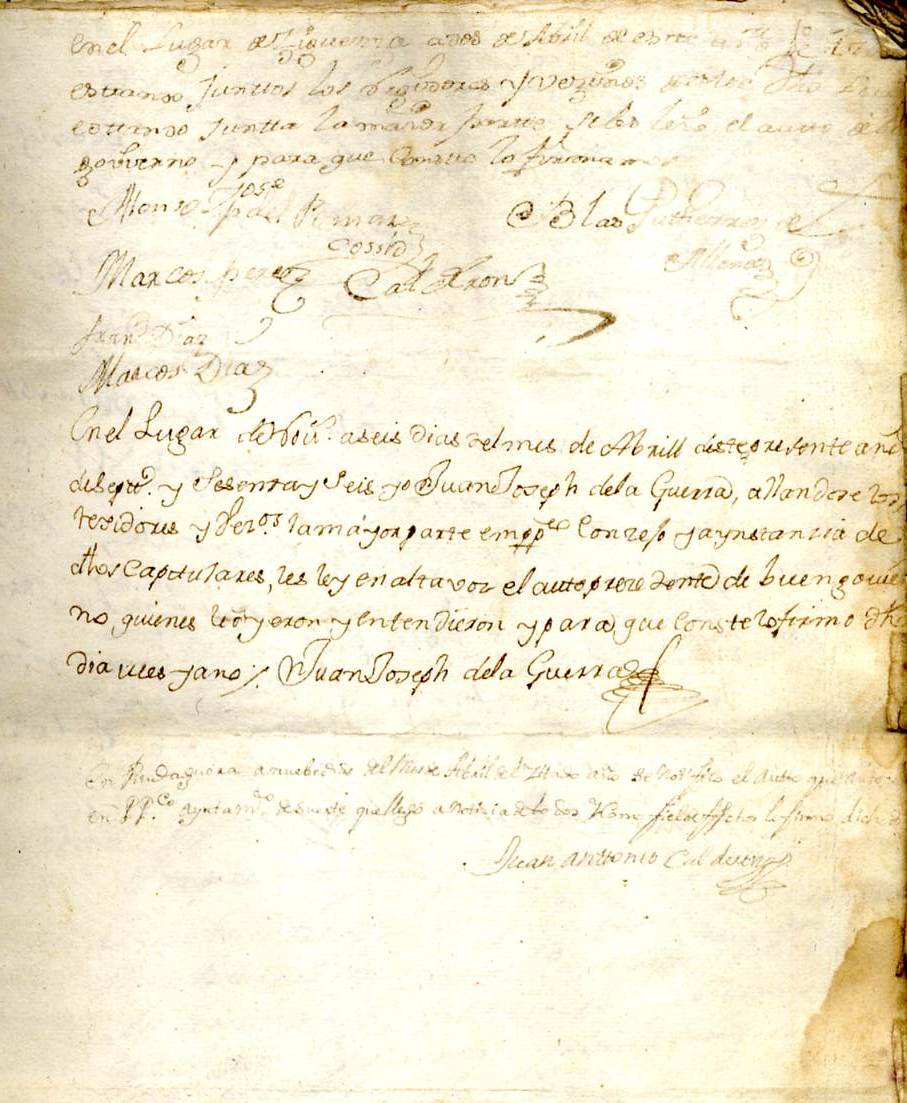 en el Lugar de a dos de Abril de este
estando Junttos los Regidores y vezinos
estando Juntta la maior partte se les leio el auto de
govierno y para que Conste lo firmamos
Alonso Jose
Blas Gutierrez de
Cossio
Marcos perez Calderon
Allende
Franco Diaz
Marcos Diaz
En el Lugar de a seis dias del mes de Abrill deste presente año
de septs. y Sesenta y Seis yo Juan Joseph de la Guerra, allandose los
rexidores y vezos la mayor parte em ppco Conzejo y a ynstanzia de
dhos Capitulares, les ley en alta voz el auto prezedente de buen gouier
no, quienes le oyeron y entendieron y para que Conste lo firmo dho
dia mes y año Juan Joseph de la Guerra
En a nuebe dias del Mes de Abril del Zitado año se Notifico el Auto que
en PPco Ayuntamto de suerte que llego a Notizia de todos lo firmo dicho
Juan Anttonio Calderon